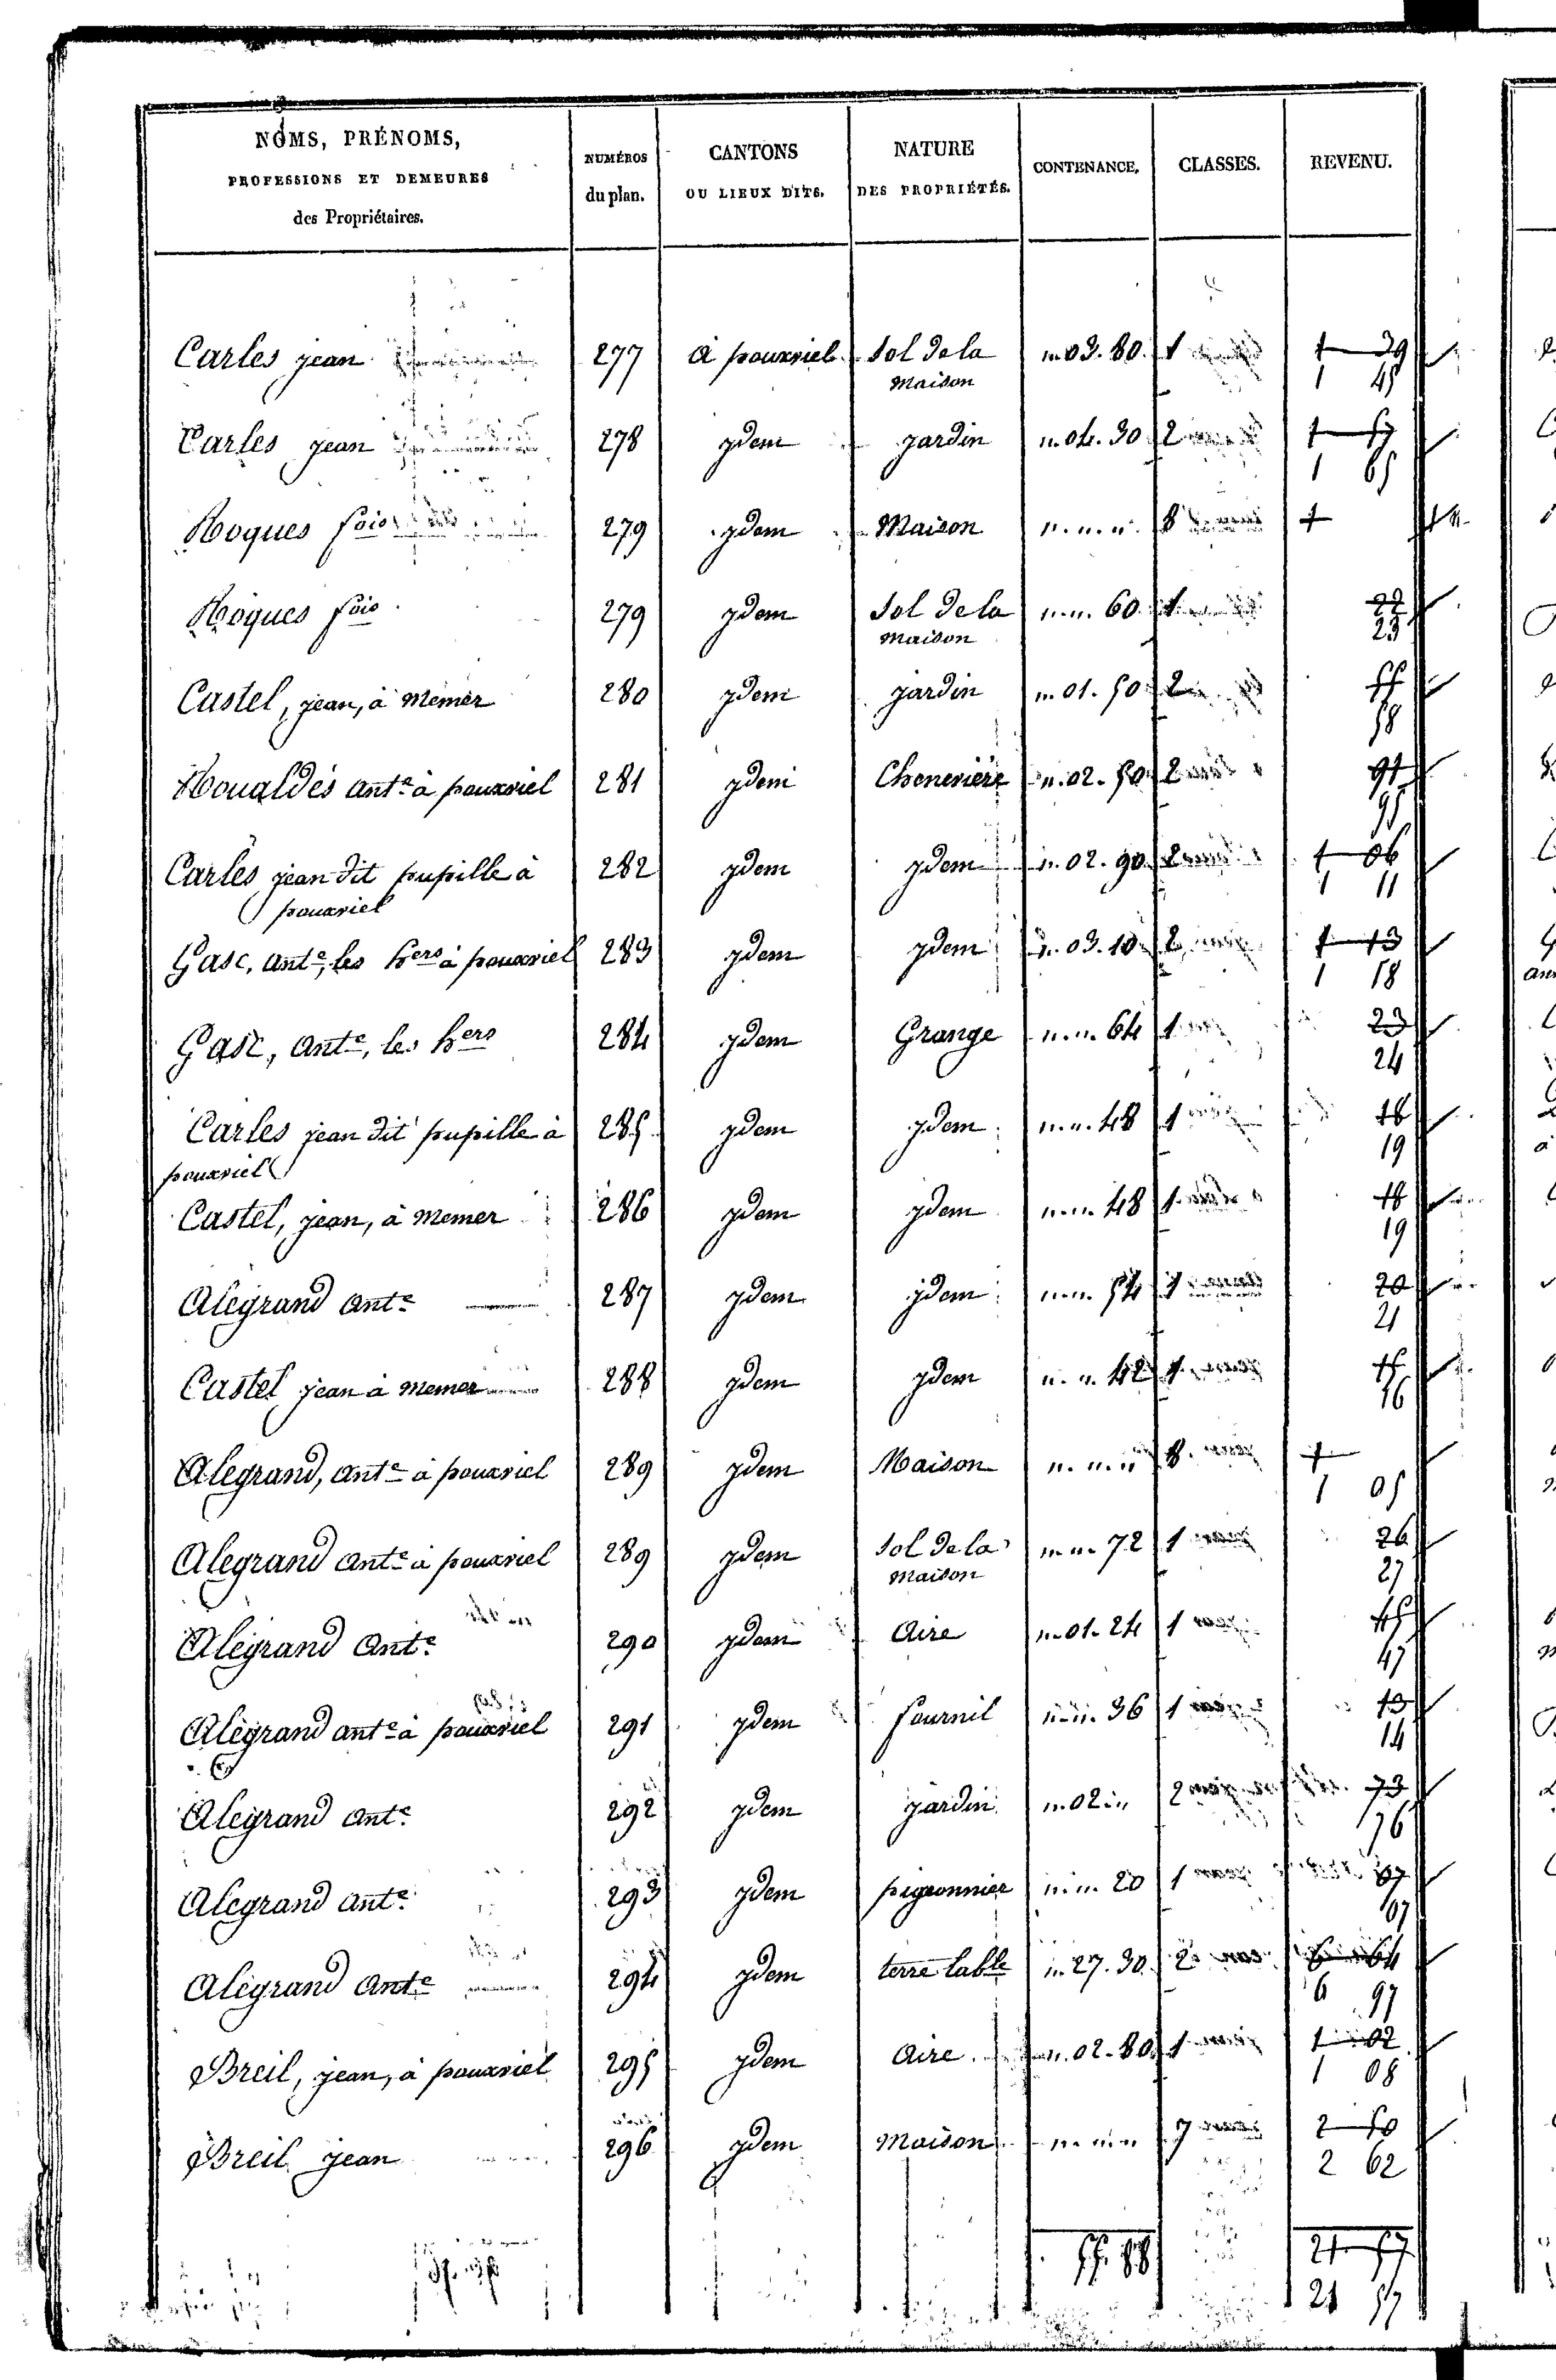 NOMS, PRÉNOMS,
PROFESSIONS ET DEMEURES
des Propriétaires.
NUMÉROS
du plan.
CANTONS
OU LIEUX DITS.
NATURE
DES PROPRIÉTÉS.
CONTENANCE.
CLASSES.
REVENU.
Carles jean 277 à pouxriel Sol de la 03. 80. 1 1 39
Maison 1 45
Carles jean 278 ydem jardin 04. 30 2 1 57
1 65
Roques fois 279 ydem Maison 8 1
Roques fois 279 ydem Sol de la 60 1 22
Maison 23
Castel, jean, à Memer 280 ydem jardin 01. 50 2 55
58
Roualdés ante à pouxriel 281 ydem Cheneviere 02. 50 2 91
95
Carles jean dit pupille à 282 ydem ydem 02. 90 2 1 06
pouxriel 1 11
Gasc, ante, les hers à pouxriel 283 ydem ydem 03. 10 2 1 13
1 18
Gasc, ante, les hers 284 ydem Grange 64 1 23
24
Carles jean dit pupille à 285 ydem ydem 48 1 18
pouxriel 19
Castel, jean, à Memer 286 ydem ydem 48 1 18
19
Alegrand ante 287 ydem ydem 54 1 20
21
Castel jean à Memer 288 ydem ydem 42 1 15
16
Alegrand, ante à pouxriel 289 ydem Maison 8 1
1 05
Alegrand ante à pouxriel 289 ydem Sol de la 72 1 26
Maison 27
Alegrand ante 290 ydem Aire 01. 24 1 45
47
Alegrand ante à pouxriel 291 ydem fournil 36 1 13
14
Alegrand ante 292 ydem jardin 02 2 73
76
Alegrand ante 293 ydem pigeonnier 20 1 07
07
Alegrand ante 294 ydem terre lable 27. 30 2 6 64
6 97
Breil, jean, à pouxriel 295 ydem Aire 02. 80 1 1 02
1 08
Breil jean 296 ydem Maison 7 2 50
2 62
55. 88 21 57
21 57